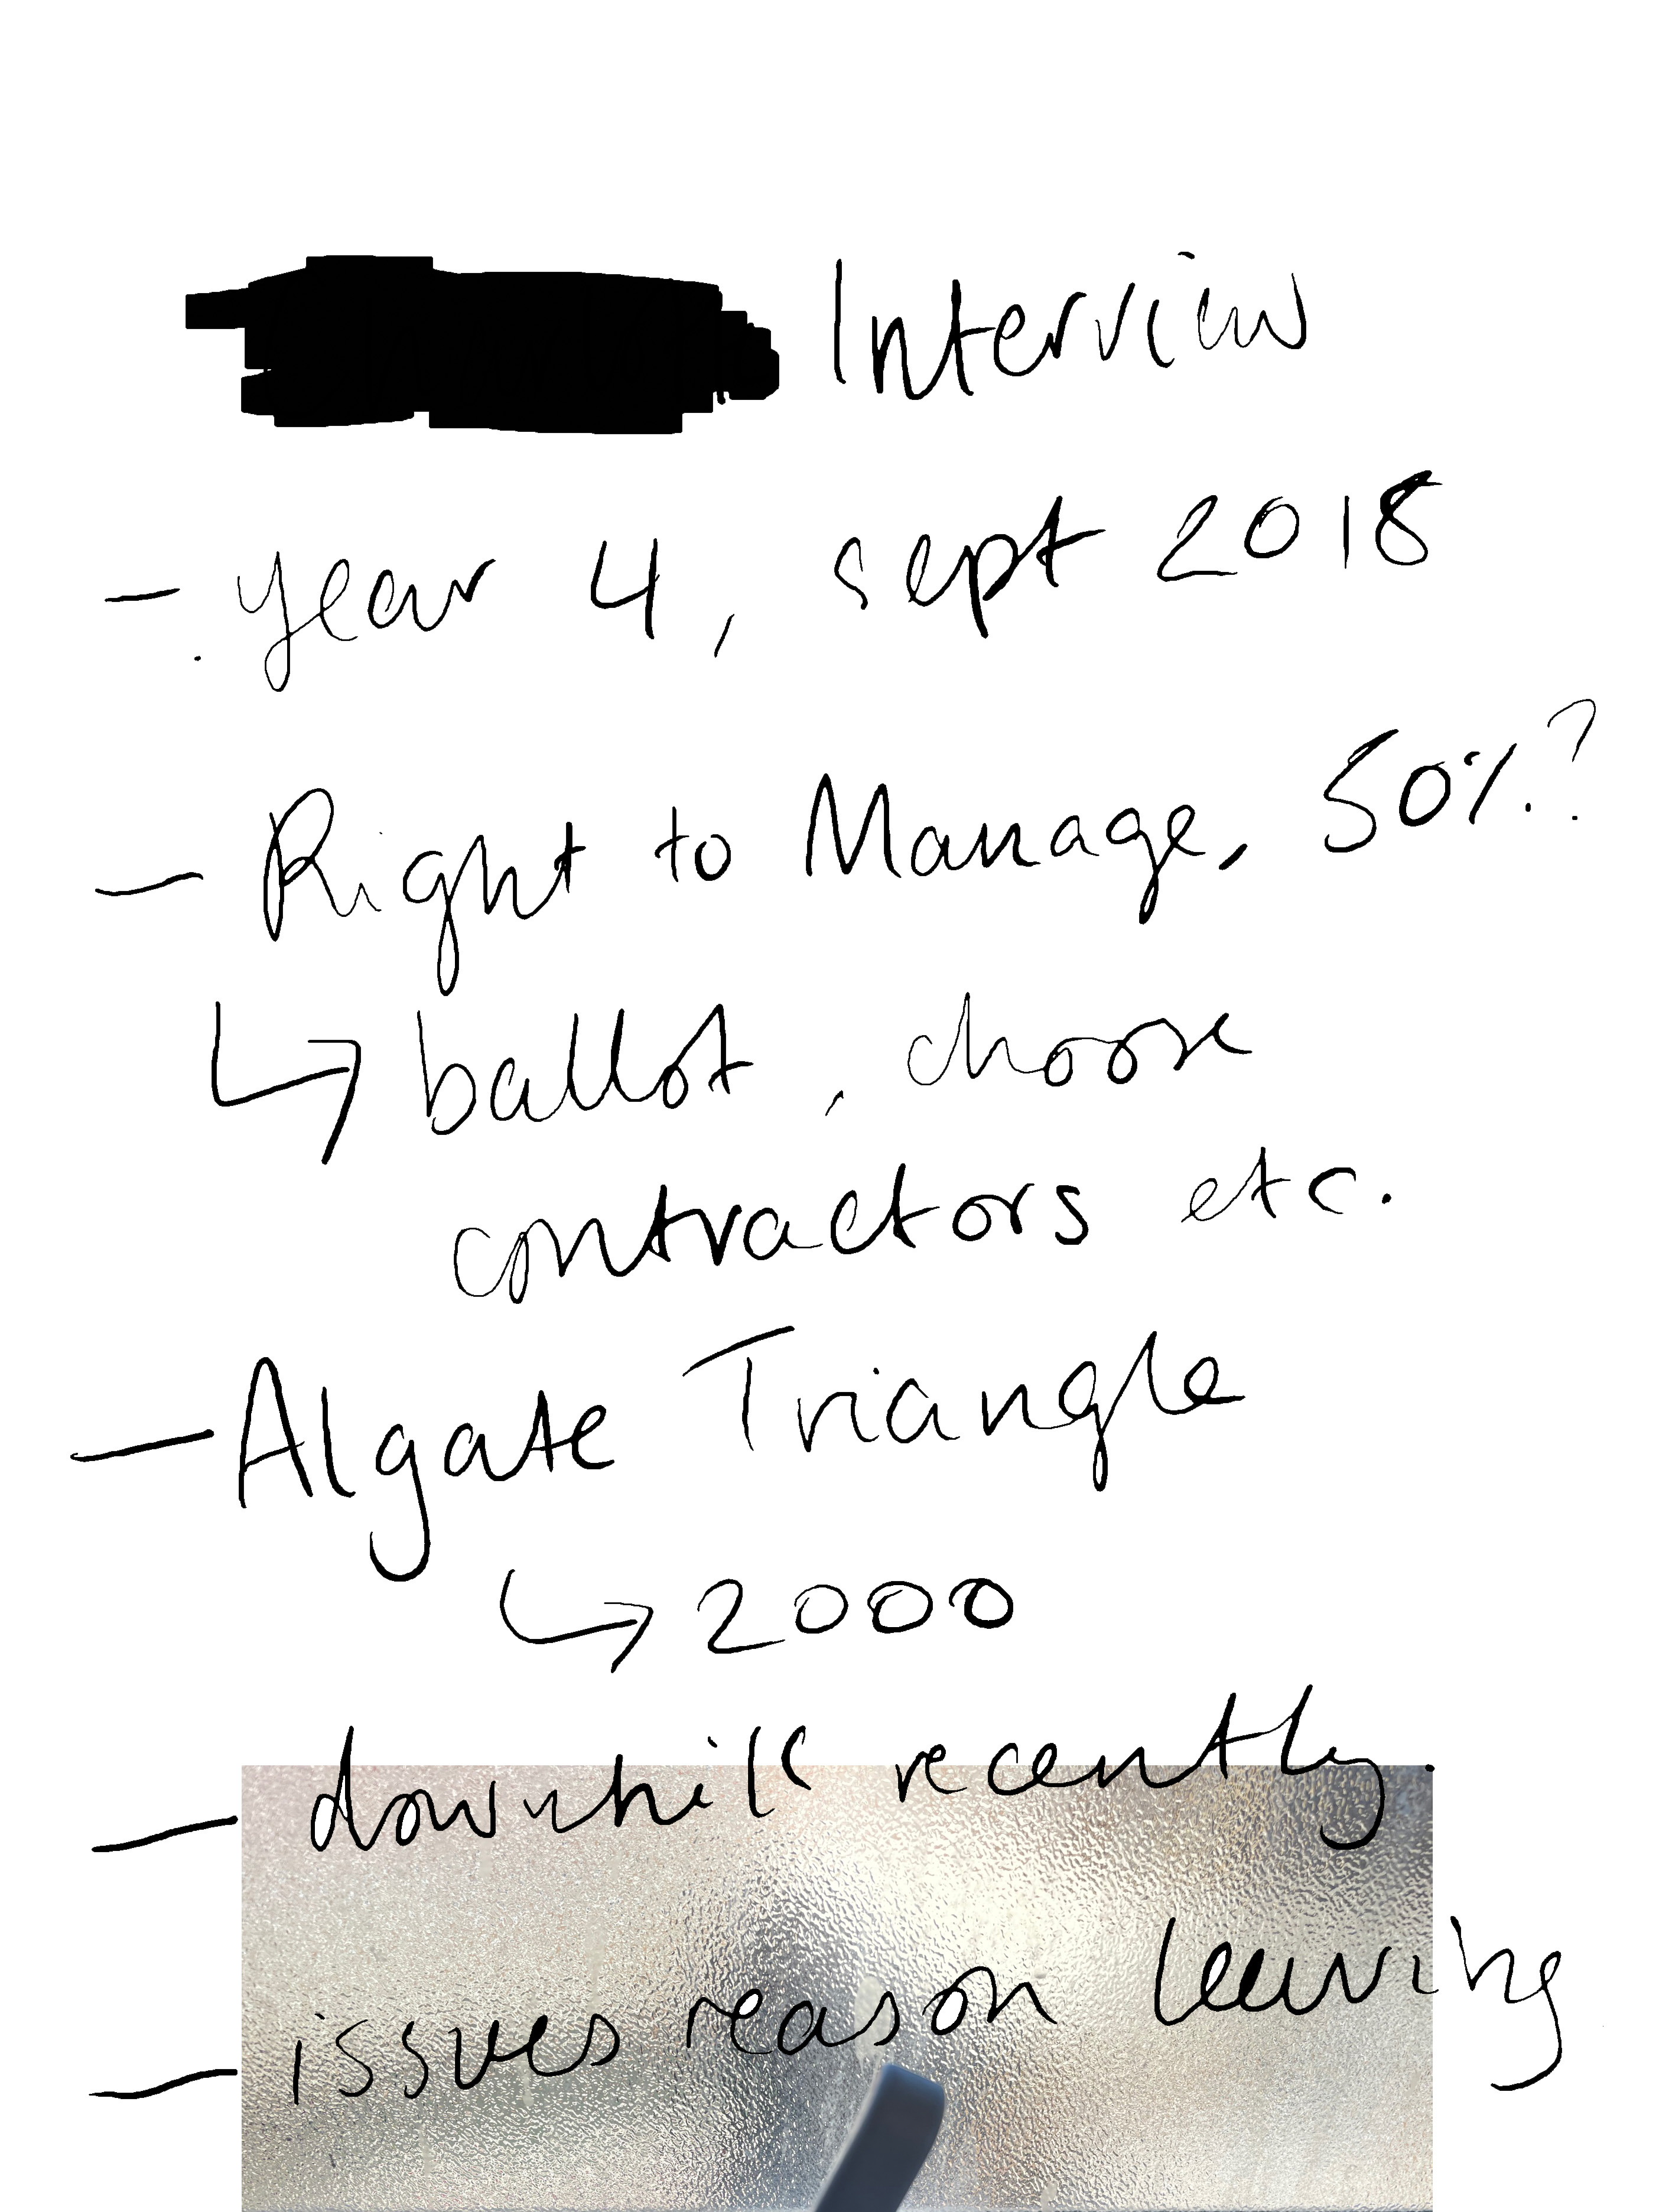 Interview
- year 4, sept 2018
- Right to Manage, 50%?
↳ ballot, choose
contractors etc.
- Algate Triangle
↳ 2000
- downhill recently.
- issues reason leaving